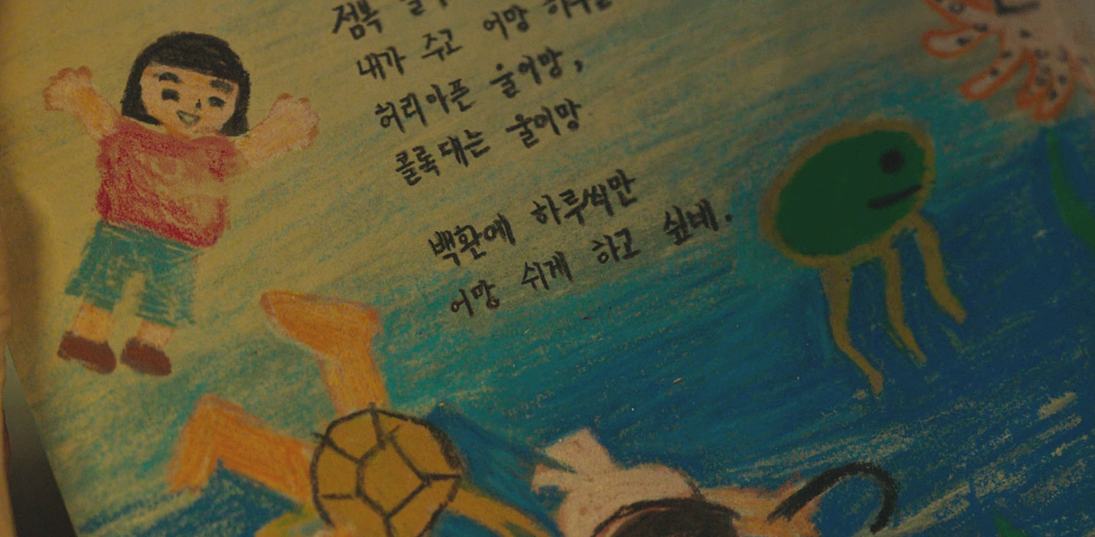 점복
내가 주고 어망
허리아픈 울어망,
콜록대는 울어망
백환에 하루씩만
어망 쉬게 하고 싶네.